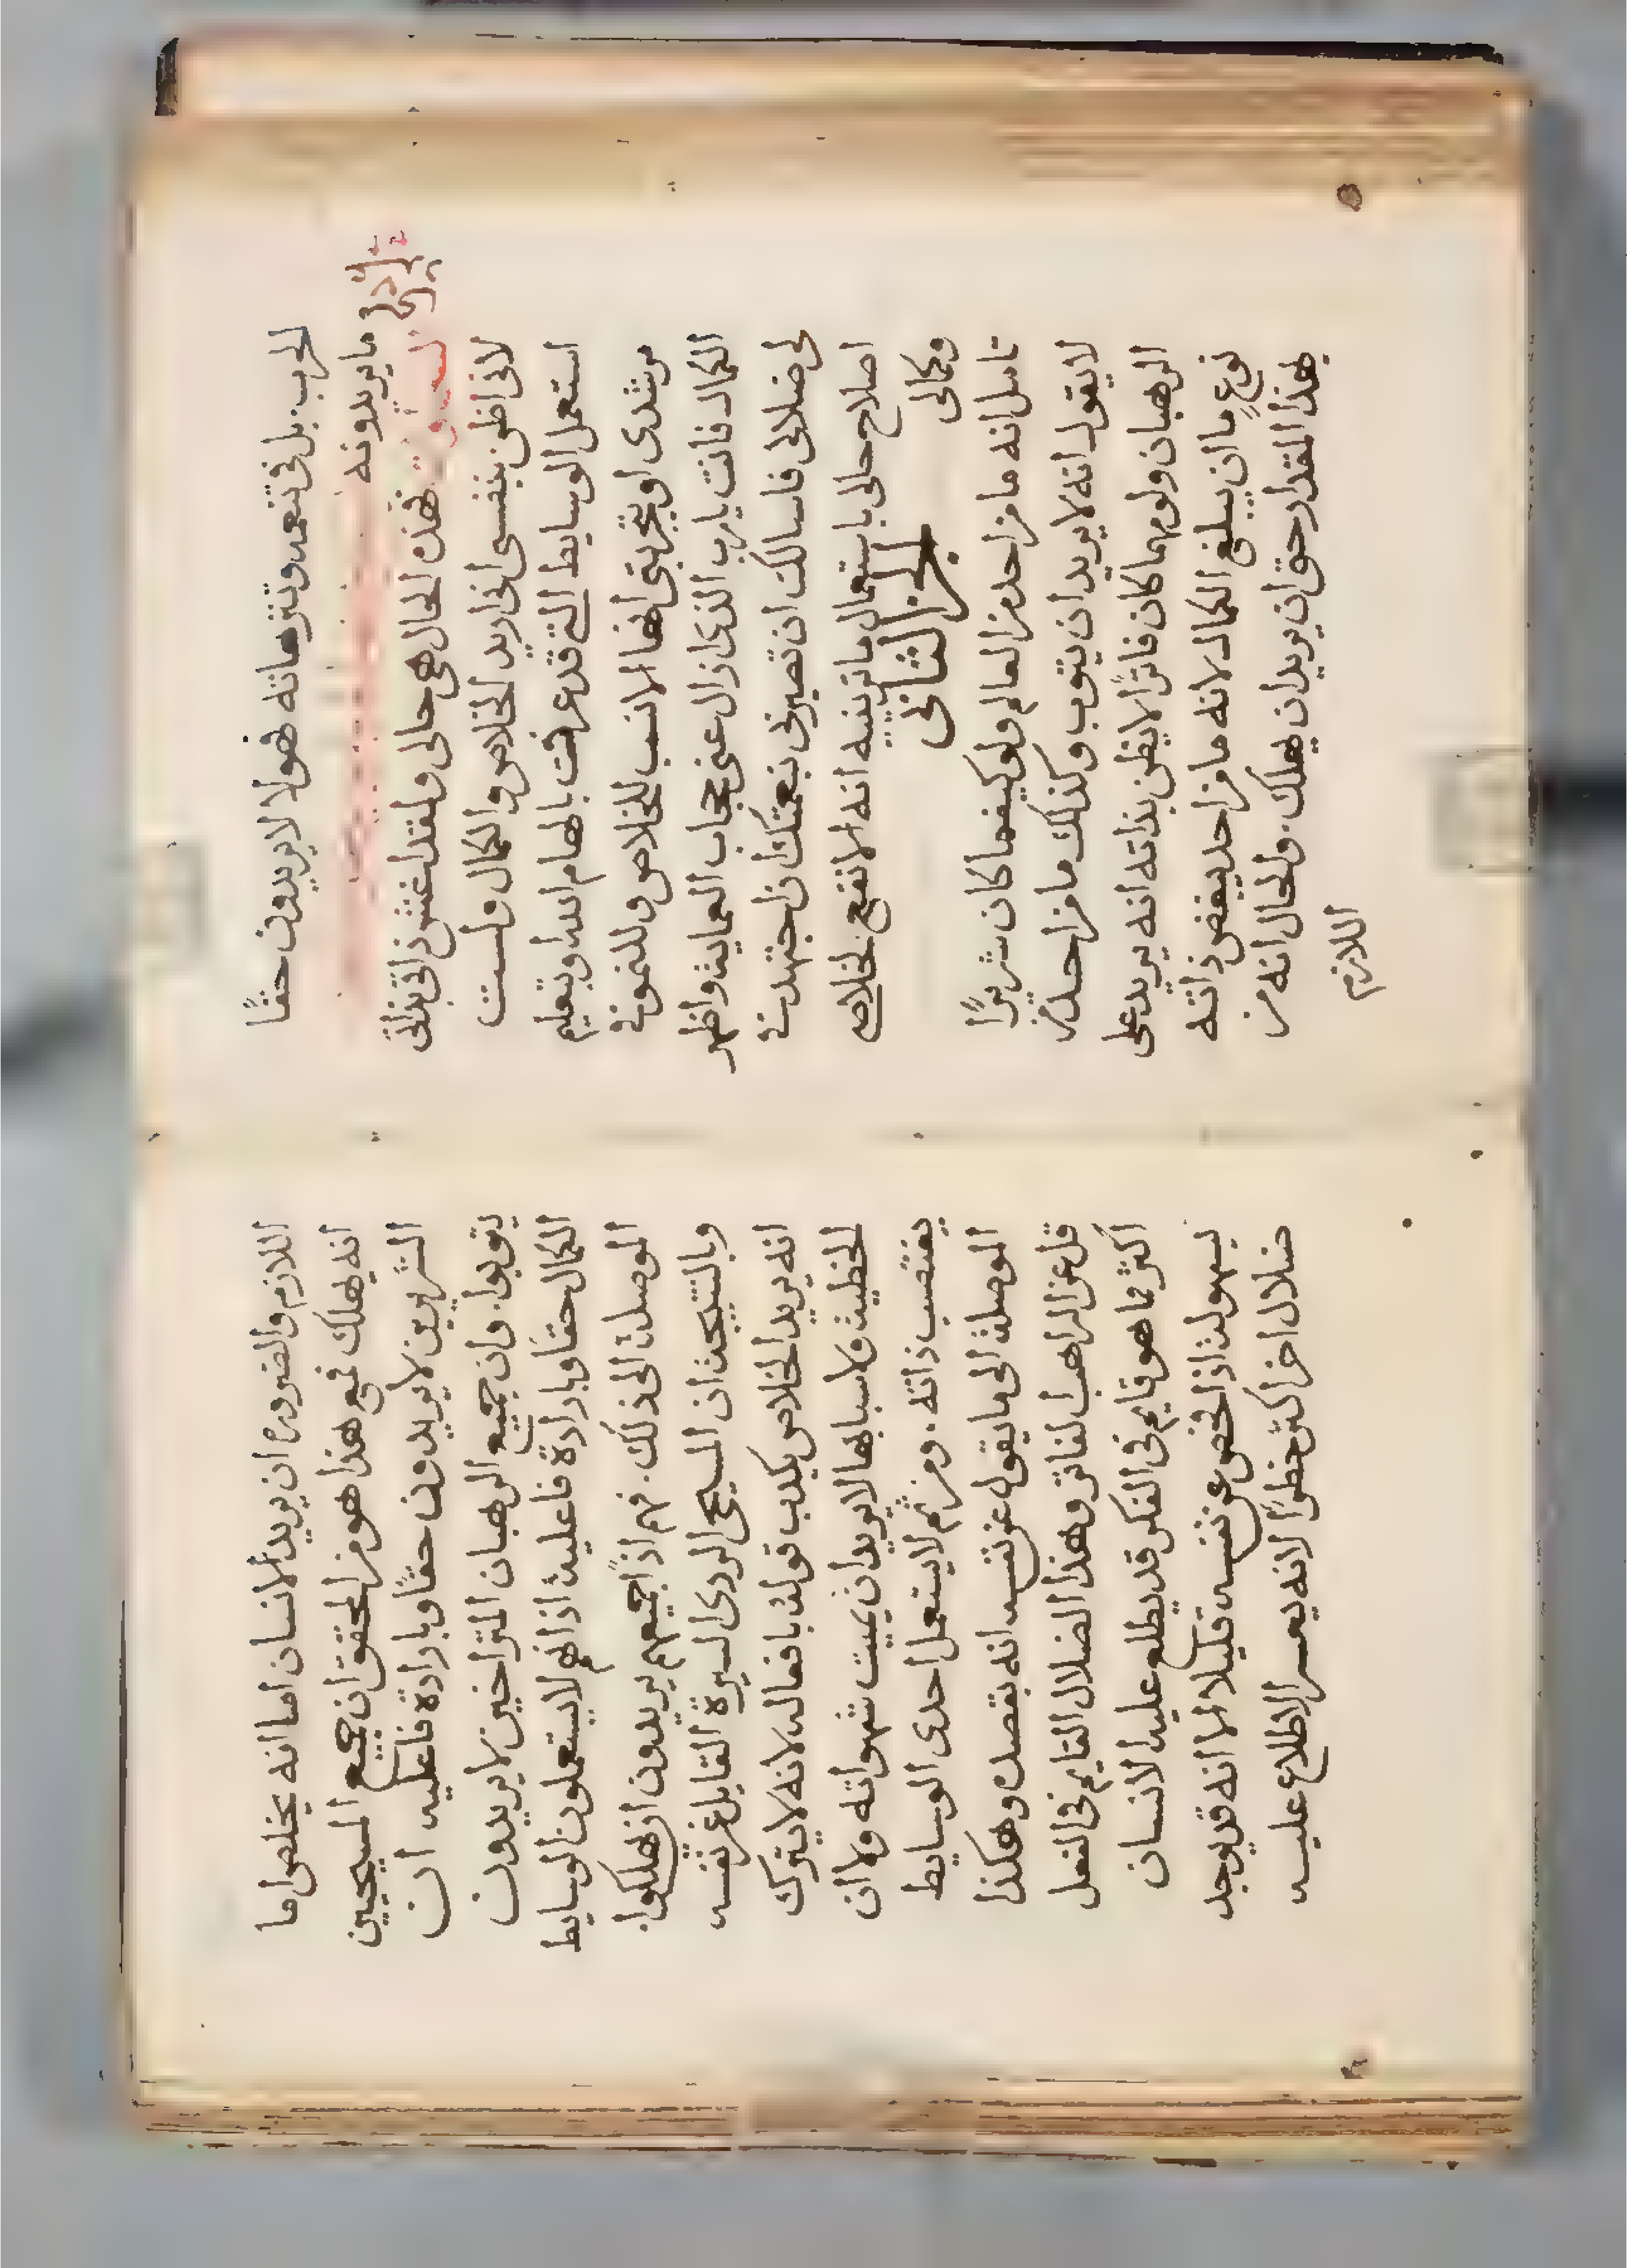 الحرب. بل في تنعمه وتنزهاته فهولا لا يريدون حقًا
ما يريدونه
فهذه الحال هي حالي ولمقدار غشي ذاتي بذاتي
لاني اظن بنفسي اني اريد الخلاص والكمال ولست
استعمل الوسايط التي قد عرفت بالهام الله او بتعليم
مرشدي او بتجربتي انها الانسب للخلاص وللنمو في
الكمال فانت يارب الذي ازال عني حجاب العماية واظهر
لي ضلالي فاسالك ان تصيرني بنعمتك ان اجتهد في
اصلاح حالي باستعمال ما تريني انه الانفع لخلاصي
وكمالي
الجز الثاني
تامل انه ما من احد من العالم ولو كيفما كان شريرًا
لا يقول انه لا يريد ان يتوب وكذلك ما من احد من
الرهبان ولو مهما كان فاترًا لا يظن بذاته انه يريد على
نوعٍ ما ان يبلغ الكمال لانه ما من احد يبغض ذاته
بهذا المقدار حتى ان يريد ان يهلك. والحال انه من
اللازم
اللازم والضروري ان يريد الانسان اما انه يخلص او اما
انه يهلك فمع هذا هو من المحقق ان جميع المسيحيين
الشريرين لا يريدون حقًا وبارادة فاعليه ان
يتوبوا. وان جميع الرهبان المتراخين لا يريدون
الكمال حقًا وبارادة فاعلية اذ انهم لا يستعملون الوسايط
الموصلة الى ذلك. فهم اذًا جميعهم يريدون ان يهلكوا.
وبالنتيجة ان المسيحي الردي السيرة القايل عن نفسه
انه يريد الخلاص يكدب قوله بافعاله لانه لا يترك
الخطية ولا اسبابها لا يريد ان يميت شهواته ولا ان
يغتصب ذاته. ومن ثم لا يستعمل احدى الوسايط
الموصلة الى ما يقول عن نفسه انه بقصده وهكذا
قل عن الراهب الفاتر وهذا الضلال القايم في الفعل
اكثر مما هو قايم في الفكر قد يطلع عليه الانسان
بسهولة اذا فحص عن نفسه قليلا الا انه قد يوجد
ضلال اخر اكثر خطرًا لانه يعسر الاطلاع عليه